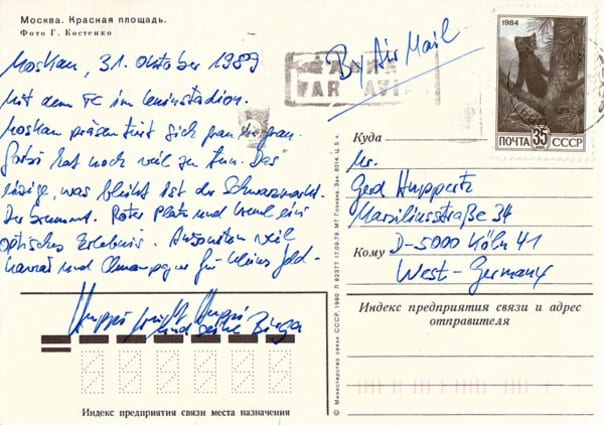 Москва. Красная площадь.
Фото Г. Костенко
Moskau, 31. Oktober 1989
Mit dem FC im Leninstadion.
Moskau präsentiert sich grau in grau.
hat noch viel zu tun. Das
einzige, was blüht ist der Schwarzmarkt.
Der brummt. Roter Platz und Kreml ein
optisches Erlebnis. Ansonsten viel
Kaviar und Champagner für kleines Geld.
und seine
By Air Mail
PAR AVION
1984
ПОЧТА 35 СССР
Куда
Mr.
Gerd Huppertz
Marsiliusstraße 34
Кому
D-5000 Köln 41
West-Germany
Индекс предприятия связи и адрес
отправителя
Индекс предприятия связи места назначения
© Министерство связи СССР. 1980